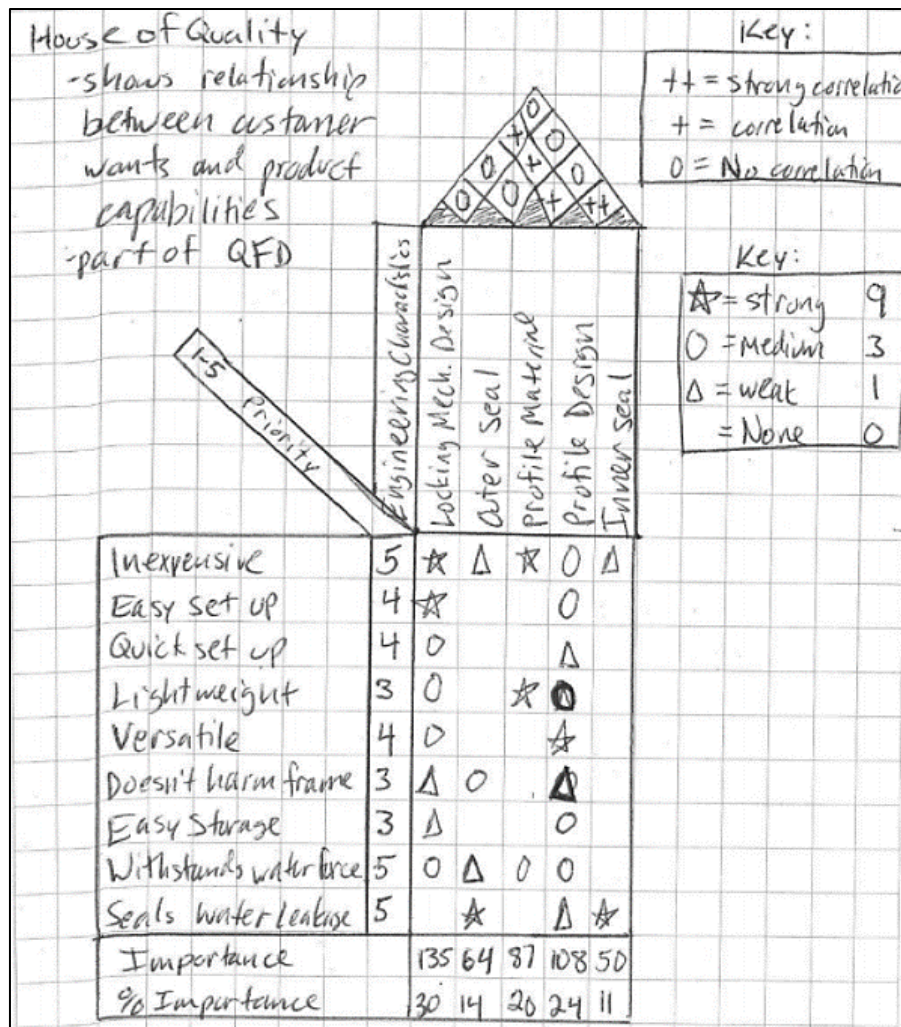 House of Quality
-shows relationship
between customer
wants and product
capabilities
-part of QFD
Key:
++ = strong correlatio
+ = correlation
0 = No correlation
0
+ 0
0 + 0
0 0 ++ ++
Key:
☆ = strong 9
O = medium 3
Δ = weak 1
= None 0
1-5
priority
Engineering Characteristics
Locking Mech. Design
Outer Seal
Profile Material
Profile Design
Inner Seal
Inexpensive 5 ☆ Δ ☆ O Δ
Easy set up 4 ☆ O
Quick set up 4 O Δ
Lightweight 3 O ☆ O
Versatile 4 O ☆
Doesn't harm frame 3 Δ O Δ
Easy Storage 3 Δ O
Withstands water force 5 O Δ O O
Seals water leakage 5 ☆ Δ ☆
Importance 135 64 87 108 50
% Importance 30 14 20 24 11